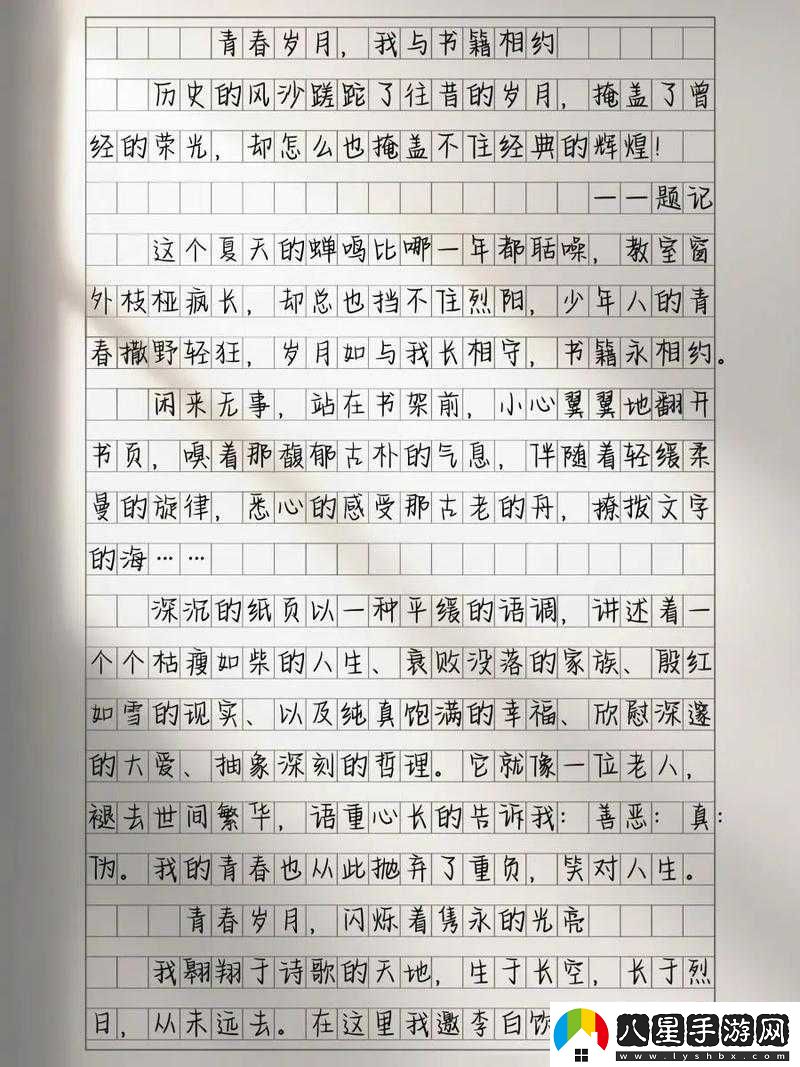 青春岁月，我与书籍相约
历史的风沙蹉跎了往昔的岁月，掩盖了曾
经的荣光，却怎么也掩盖不住经典的辉煌！
——题记
这个夏天的蝉鸣比哪一年都聒噪，教室窗
外枝桠疯长，却总也挡不住烈阳，少年人的青
春撒野轻狂，岁月如与我长相守，书籍永相约。
闲来无事，站在书架前，小心翼翼地翻开
书页，嗅着那馥郁古朴的气息，伴随着轻缓柔
曼的旋律，悉心的感受那古老的舟，撩拨文字
的海……
深沉的纸页以一种平缓的语调，讲述着一
个个枯瘦如柴的人生、衰败没落的家族、殷红
如雪的现实、以及纯真饱满的幸福、欣慰深邃
的大爱、抽象深刻的哲理。它就像一位老人，
褪去世间繁华，语重心长的告诉我：善恶：真：
伪。我的青春也从此抛弃了重负，笑对人生。
青春岁月，闪烁着隽永的光亮
我翱翔于诗歌的天地，生于长空，长于烈
日，从未远去。在这里我邀李白饮
八星手游网
www.lyshbx.com